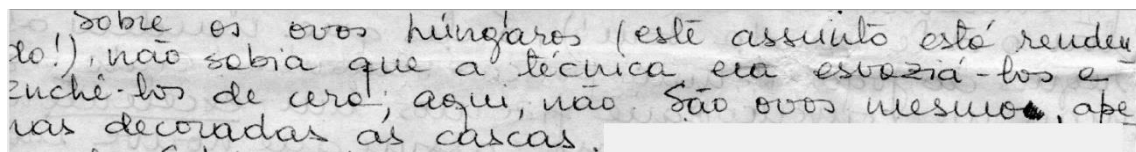 Sobre os ovos húngaros (este assunto está renden
do!), não sabia que a técnica era esvaziá-los e
enchê-los de cera; aqui, não. São ovos mesmo, ape
nas decoradas as cascas.